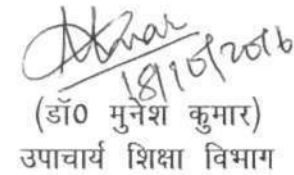 18/10/2016
(डॉ0 मुनेश कुमार)
उपाचार्य शिक्षा विभाग